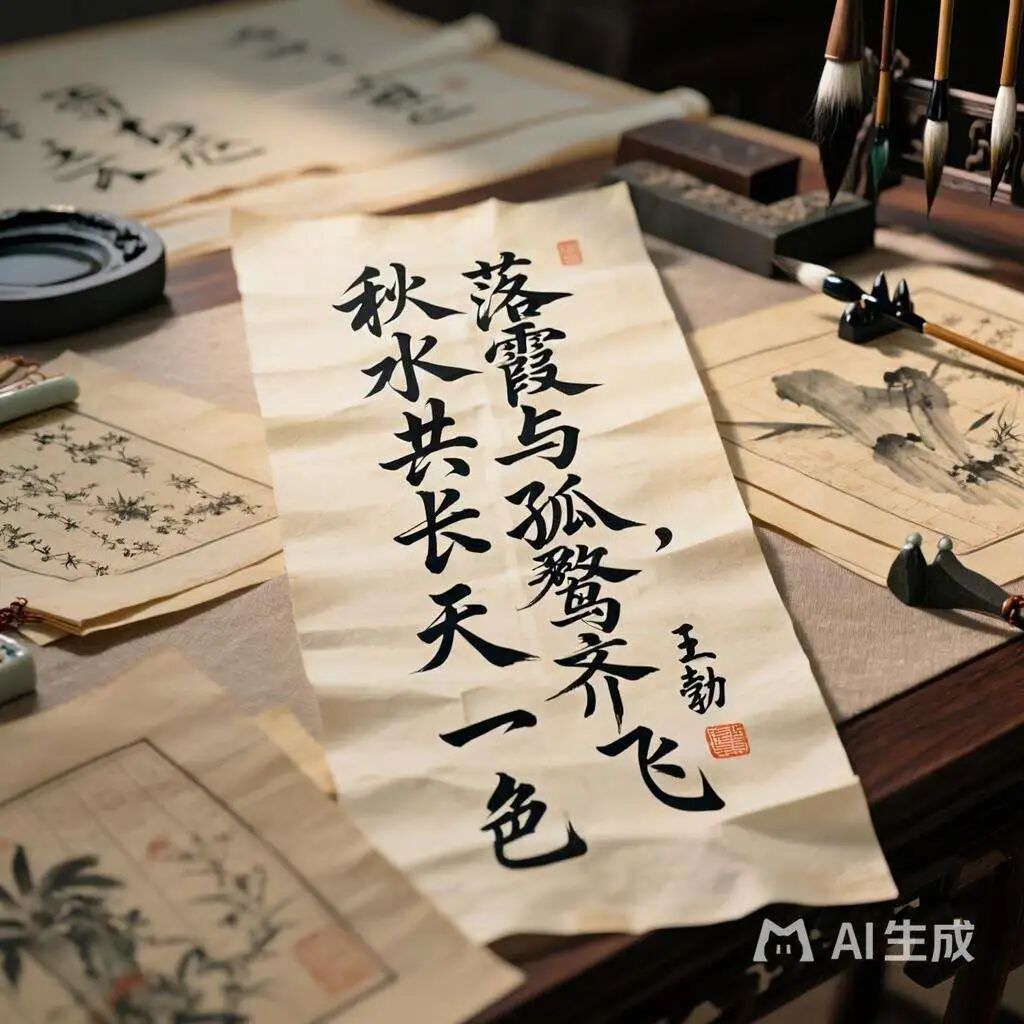 落霞与孤鹜齐飞，
秋水共长天一色
王勃
AI生成